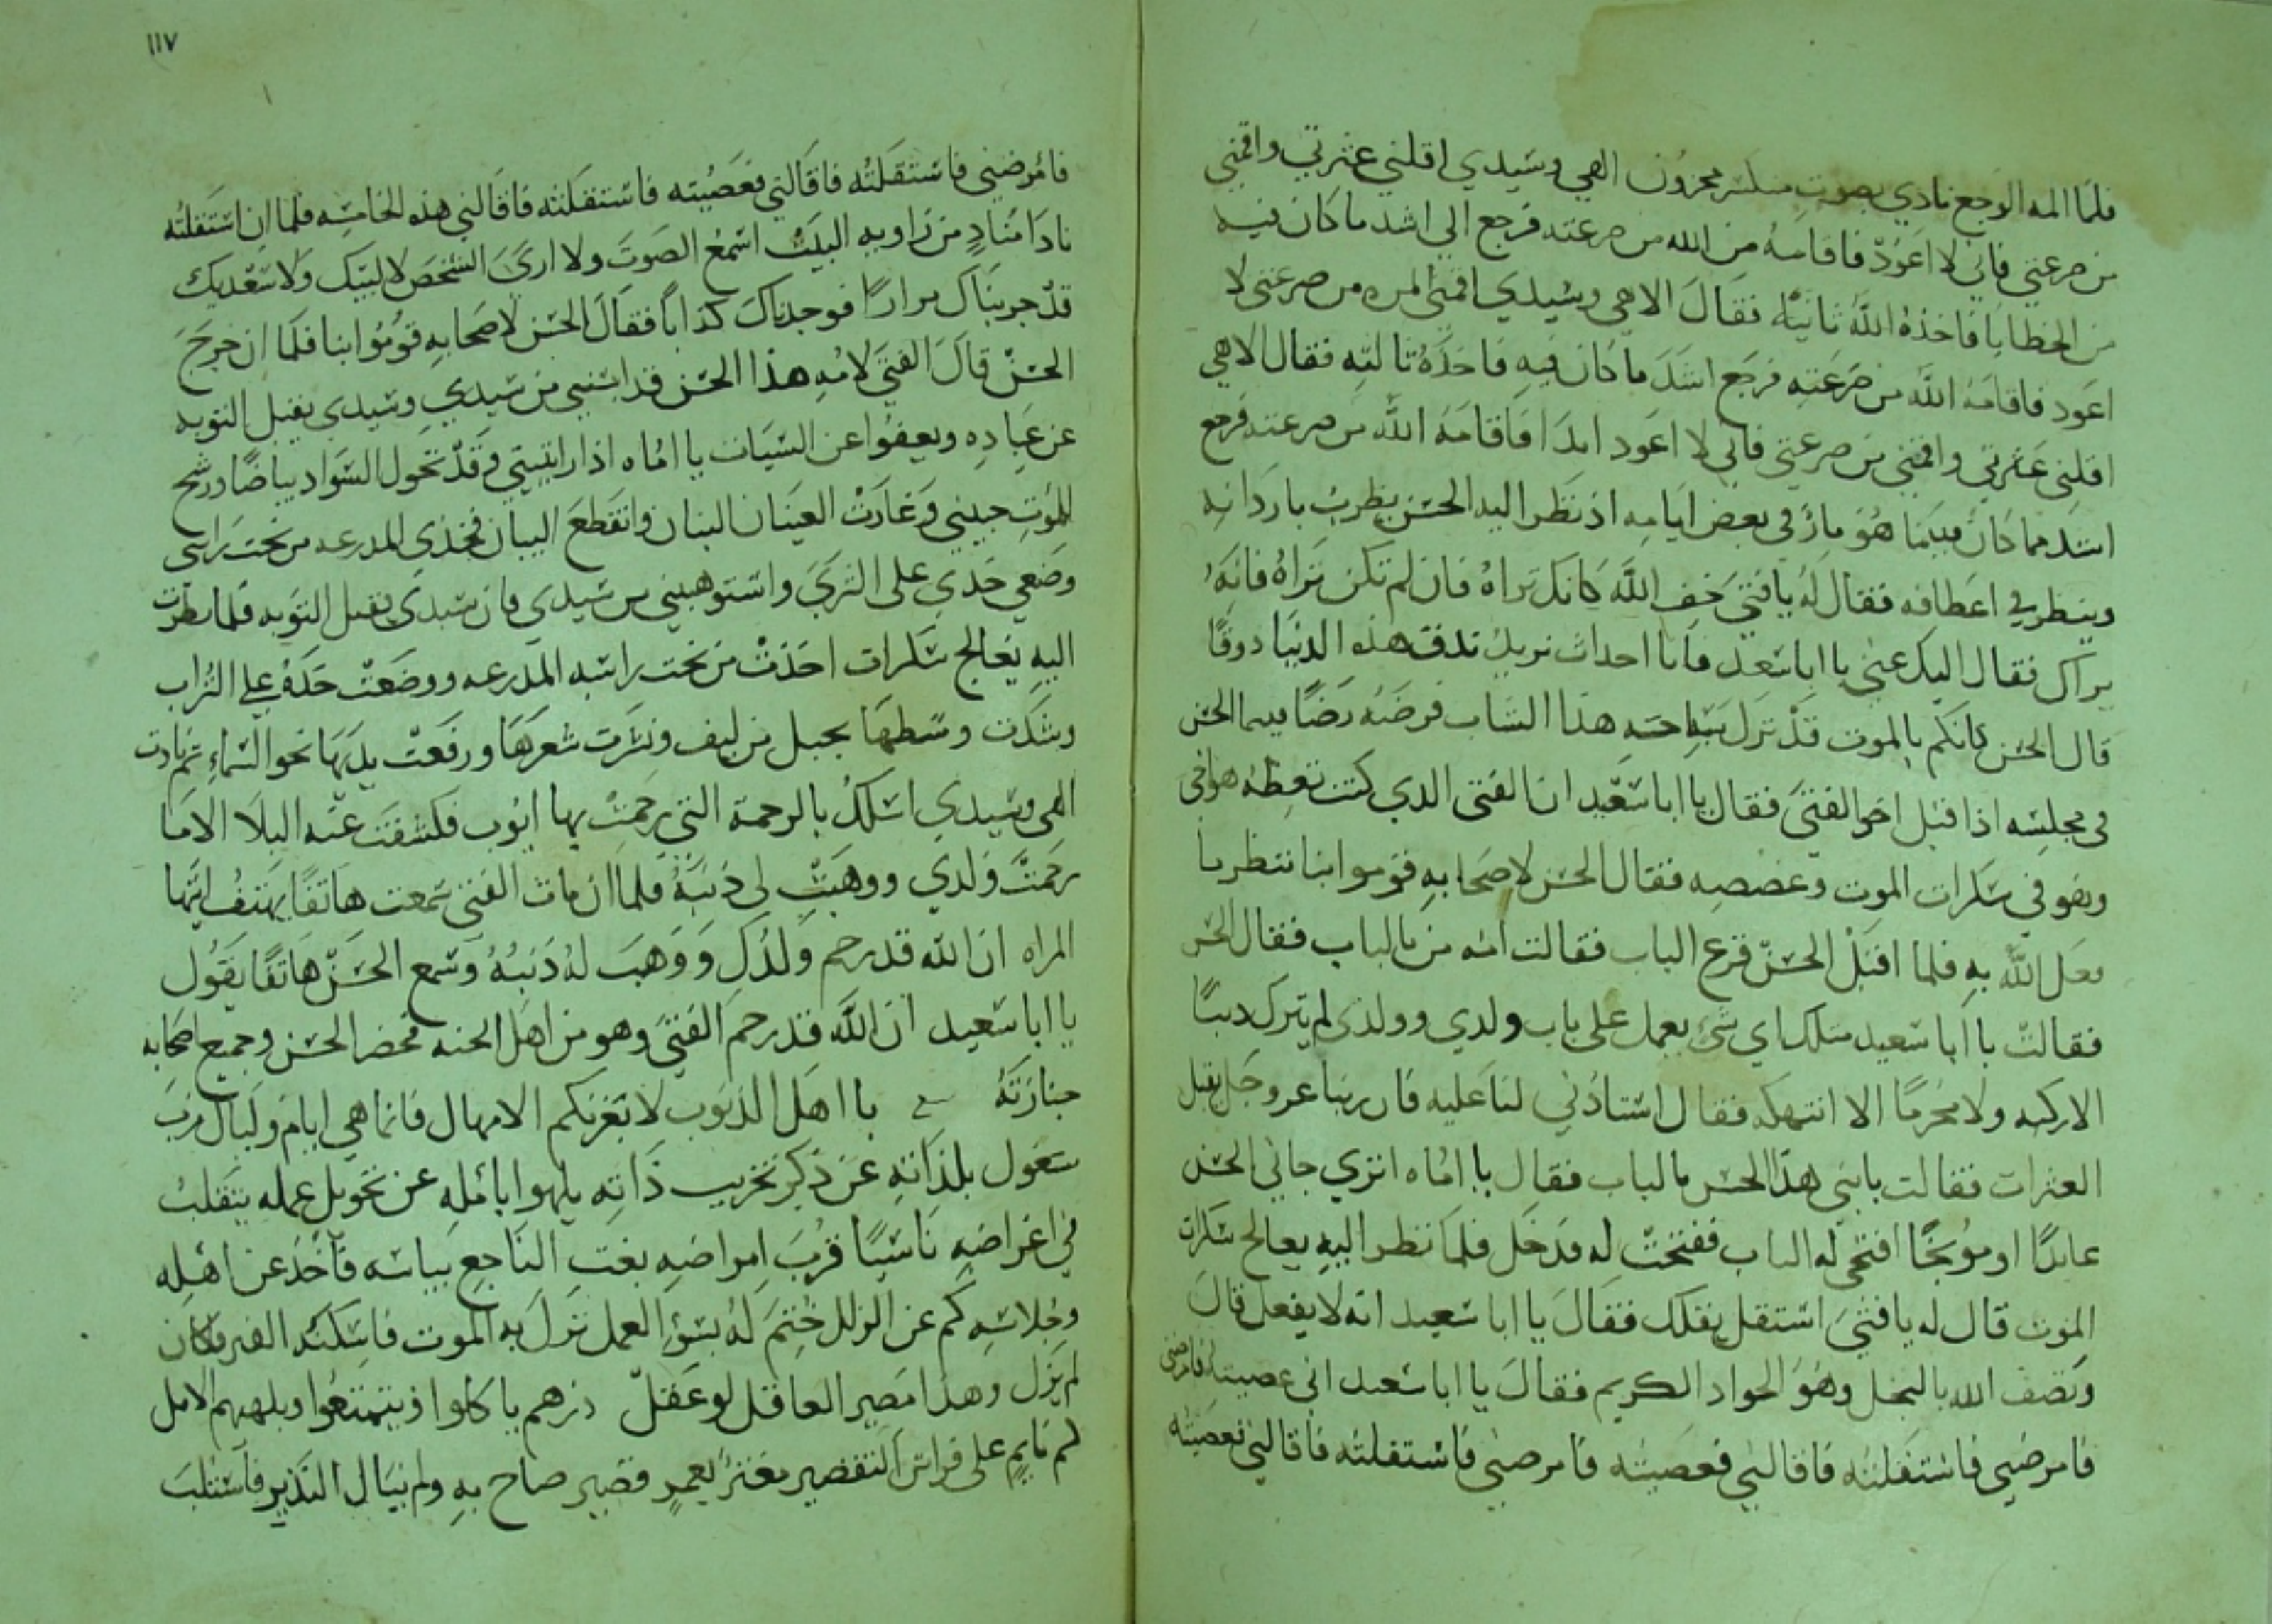 فلما المه الوجع نادي بصوت منكسر محزون الهي وسيدي اقلني عثرتي واقمني
من صرعتي فاني لا اعود فاقامه من الله من صرعته فرجع الي اشد ما كان فيه
من الخطايا فاخذه الله ثانية فقال الاهي وسيدي اقمني المره من صرعتي لا
اعود فاقامه الله من صرعته فرجع اشد ما كان فيه فاخذه ثالثه فقال الاهي
اقلني عثرتي واقمني من صرعتي فاني لا اعود ابدا فاقامه الله من صرعته فرجع
اشد مما كان فبينما هو مار في بعض ايامه اذ نظر اليه الحسن يظرب باردانه
وينظر في اعطافه فقال له يا فتي خف الله كانك تراه فان لم تكن تراه فانه
يراك فقال اليك عني يا ابا سعيد فانا احداث نريد ندق هذه الدنيا دوقا
قال الحسن كانكم بالموت قد نزل بساحته هذا الشاب فرضه رضا بينما الحسن
في مجلسه اذا قبل اخو الفتي فقال يا ابا سعيد ان الفتى الدي كنت تعظه هو اخي
وهو في سكرات الموت وغصصه فقال الحسن لاصحابه قوموا بنا ننتظر ما
فعل الله به فلما اقبل الحسن قرع الباب فقالت امه من بالباب فقال الحسن
فقالت يا ابا سعيد مثلك اي شي يعمل على باب ولدي وولدي لم يترك دنبا
الا ركبه ولا محرما الا انتهكه فقال استاذني لنا عليه فان ربنا عز وجل يقبل
العثرات فقالت يا بني هذا الحسن بالباب فقال يا اماه اتري جاني الحسن
عايدا او موبخا افتحي له الباب ففتحت له فدخل فلما نظر اليه يعالج سكرات
الموت قال له يا فتي استقل يقلك فقال يا ابا سعيد انه لا يفعل قال
وتصف الله بالبخل وهو الجواد الكريم فقال يا ابا سعيد اني عصيته فامرضني
فامرضني فاستقلته فاقالني فعصيته فامرضني فاستقلته فاقالني فعصيته
١١٧
فامرضني فاستقلته فاقالني فعصيته فاستقلته فاقالني هذه الخامسه فلما ان استقلته
نادا مناد من زاويه البيت اسمع الصوت ولا ارى الشخص لا لبيك ولا سعديك
قد جربناك مرارا فوجدناك كذابا فقال الحسن لاصحابه قوموا بنا فلما ان خرج
الحسن قال الفتي لامه هذا الحسن قد ايسني من سيدي وسيدي يقبل التوبه
عن عباده ويعفوا عن السيات يا اماه اذا رايتيني وقد تحول السواد بياضا ورشح
للموت جبيني وغارت العينان البنان وانقطع البيان فخذي المدرعه من تحت راسي
وضعي خدي على الثري واستوهبيني من سيدي فان سيدي يقبل التوبه فلما نظرت
اليه يعالج سكرات اخذت من تحت راسه المدرعه ووضعت خده علي التراب
وشدت وسطها بحبل من ليف ونشرت شعرها ورفعت يديها نحو السماء ثم نادت
الهي وسيدي اسئلك بالرحمة التي رحمت بها ايوب فكشفت عنه البلا الا ما
رحمت ولدي ووهبت لي ذنبه فلما ان مات الفتى سمعت هاتفا يهتف ايتها
المراه ان الله قد رحم ولدك ووهب له ذنبه وسمع الحسن هاتفا يقول
يا ابا سعيد ان الله قد رحم الفتي وهو من اهل الجنه فحضر الحسن وجميع اصحابه
جنازته يا اهل الذنوب لا يغرنكم الامهال فانما هي ايام وليال فرب
مشغول بلذاته عن ذكر تخريب ذاته يلهوا بامله عن تحويل عمله يتقلب
في اغراضه ناسيا قرب امراضه بغت الفاجع بباسه فاخذ عن اهله
وجلاسه كم عن الزلل ختم له بسؤ العمل نزل به الموت فاسكنه القبر فكان
لم يزل وهذا مصير العاقل لو عقل ذرهم ياكلوا ويتمتعوا ويلههم الامل
كم نايم على فراش التقصير مغتر بعمر قصير صاح به ولم يبال النذير فاستلب